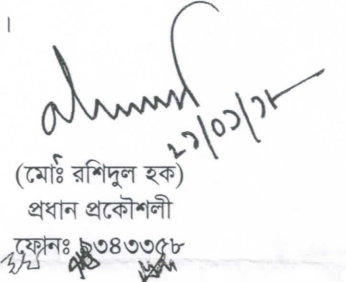 ।
২১/০১/১৮
(মোঃ রশিদুল হক)
প্রধান প্রকৌশলী
ফোনঃ ৯৩৪৩৩৫৮